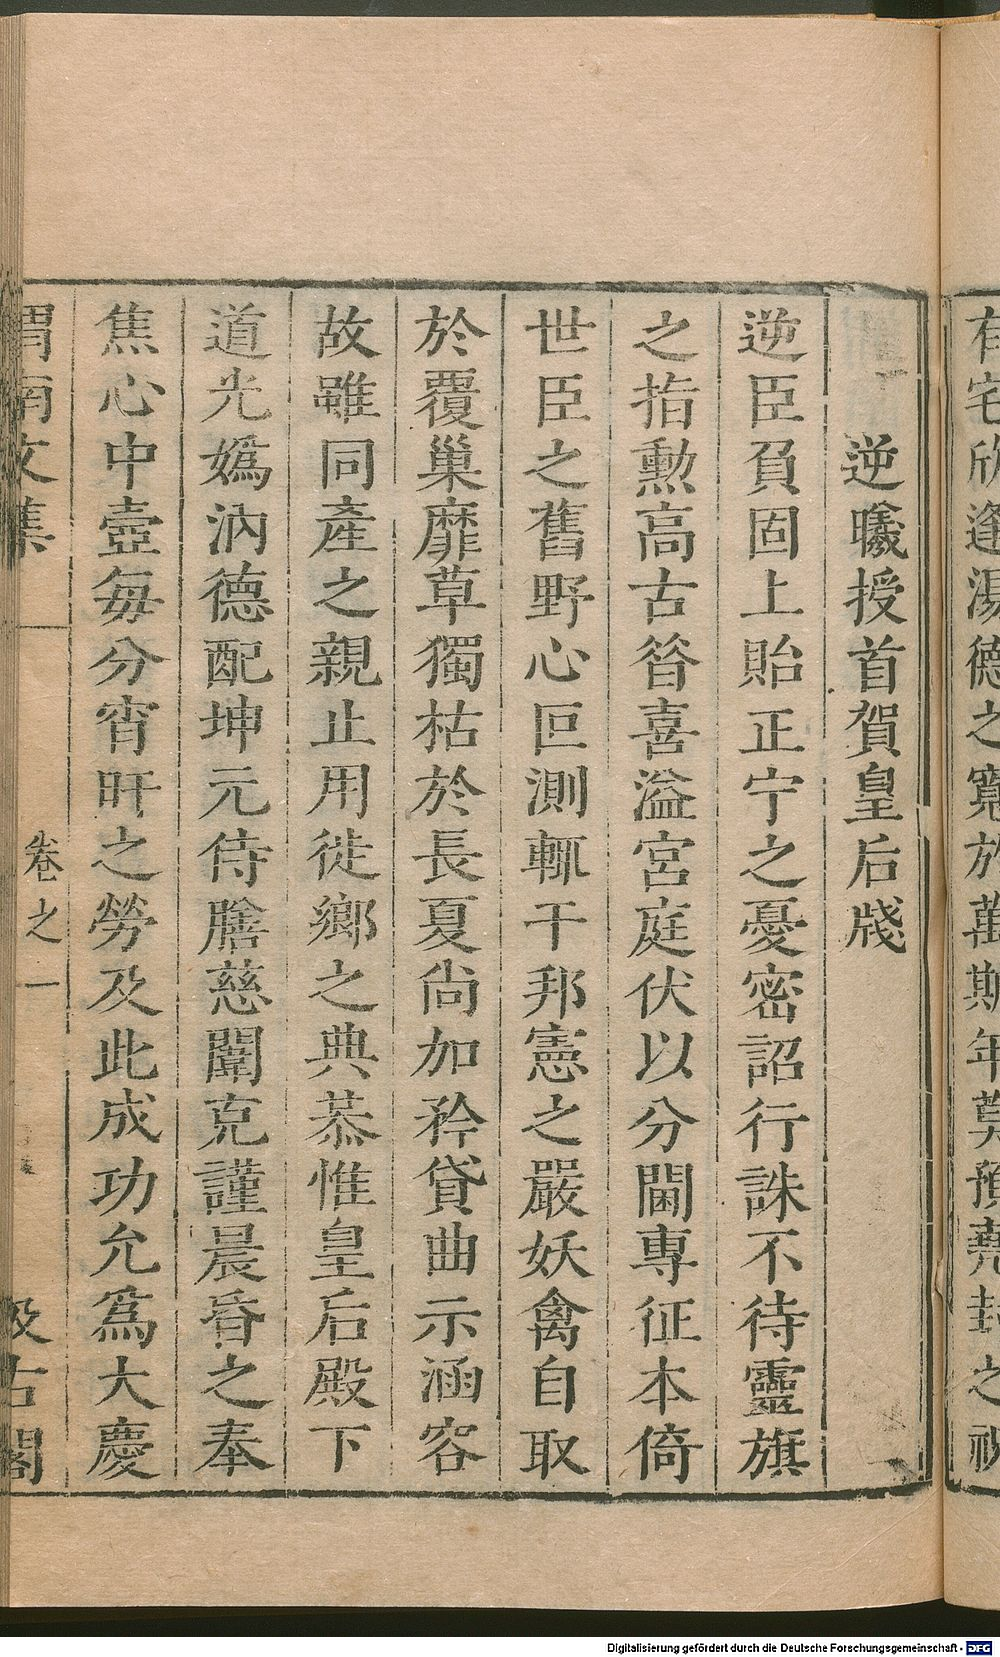 有宅欣逢湯德之寬於萬斯年莫預堯封之祝
逆曦授首賀皇后牋
逆臣負固上貽正宁之憂密詔行誅不待靈旗
之指勲高古昝喜溢宮庭伏以分閫專征本倚
世臣之舊野心叵測輒干邦憲之嚴妖禽自取
於覆巢靡草獨枯於長夏尚加矜貸曲示涵容
故雖同產之親止用徙鄉之典恭惟皇后殿下
道光嬀汭德配坤元侍膳慈闈克謹晨昏之奉
焦心中壼每分宵旰之勞及此成功允爲大慶
渭南文集
卷之一
汲古閣
Digitalisierung gefördert durch die Deutsche Forschungsgemeinschaft - DFG